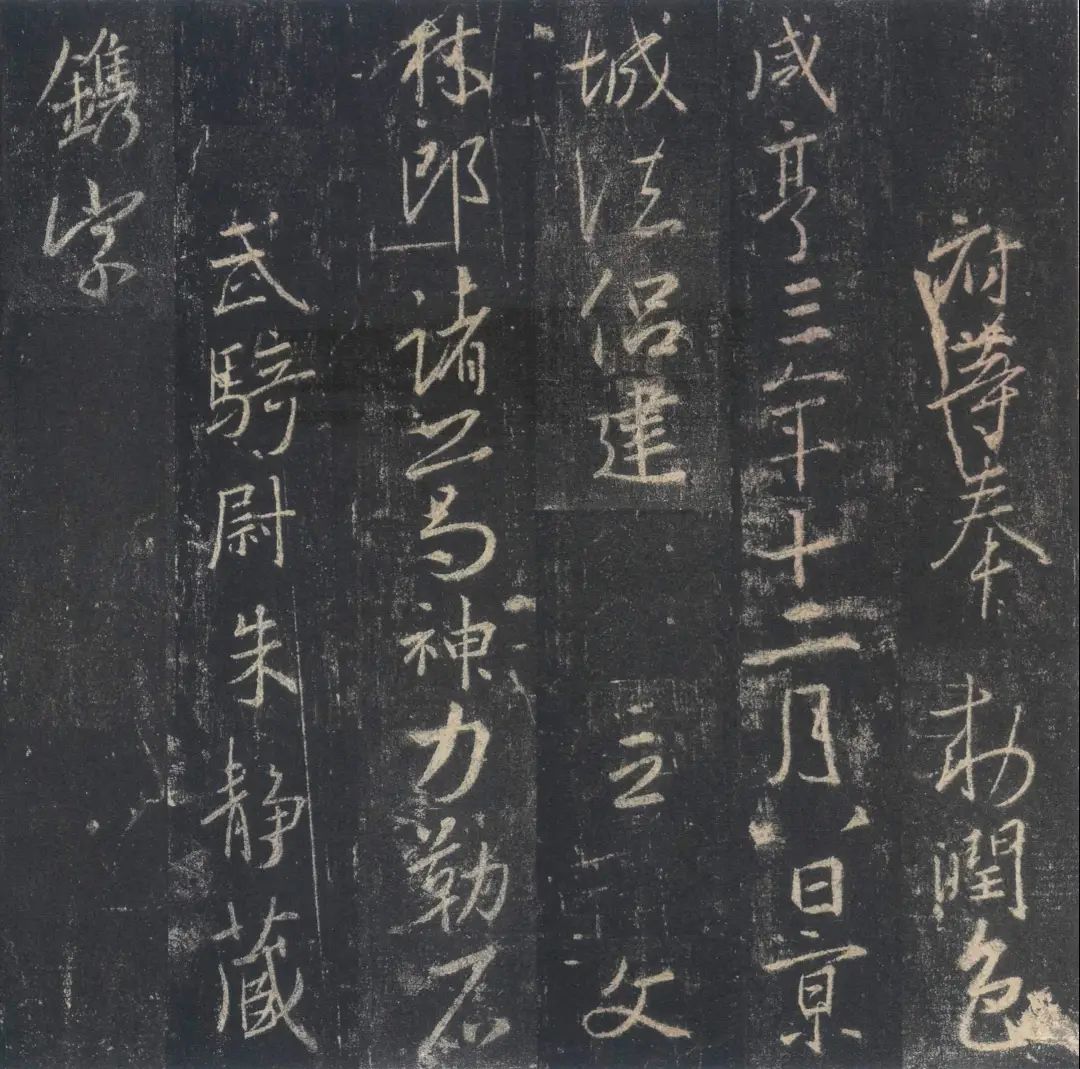 府等奉 敕潤色
咸亨三年十二月八日京
城法侶建 立 文
林郎諸葛神力勒石
武騎尉朱靜藏
鐫字